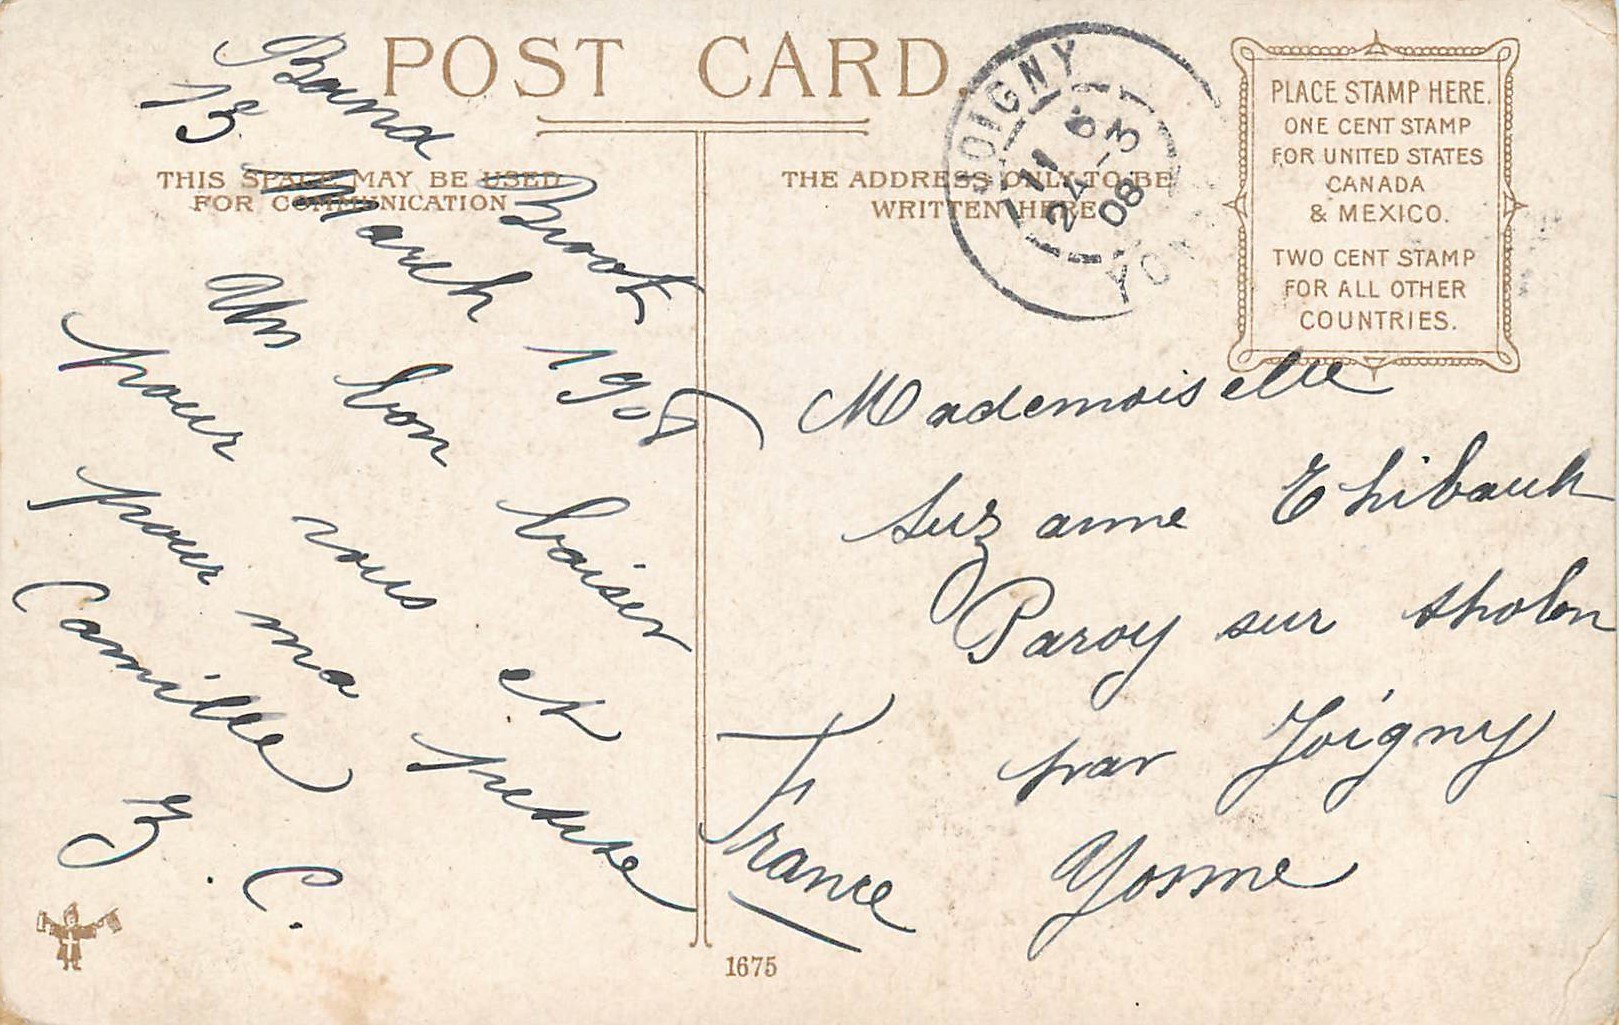 POST CARD.
THIS SPACE MAY BE USED
FOR COMMUNICATION
THE ADDRESS ONLY TO BE
WRITTEN HERE
PLACE STAMP HERE.
ONE CENT STAMP
FOR UNITED STATES
CANADA
& MEXICO.
TWO CENT STAMP
FOR ALL OTHER
COUNTRIES.
JOIGNY
11
24 - 3
08
YONNE
Bound Brook
13 March 1908
Un bon baiser
pour vous et
pour ma petite
Camille
B. C.
Mademoiselle
Suzanne Thibault
Paroy sur tholon
par Joigny
Yonne
France
1675